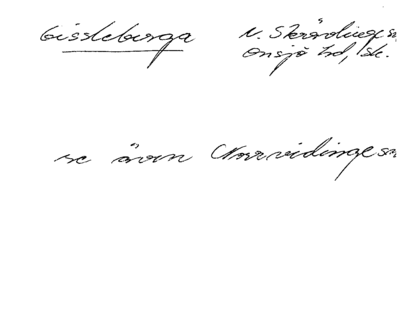 Gissleberga N. Skrävlinge sn
Onsjö hd, Sk.
se även Norrvidinge sn